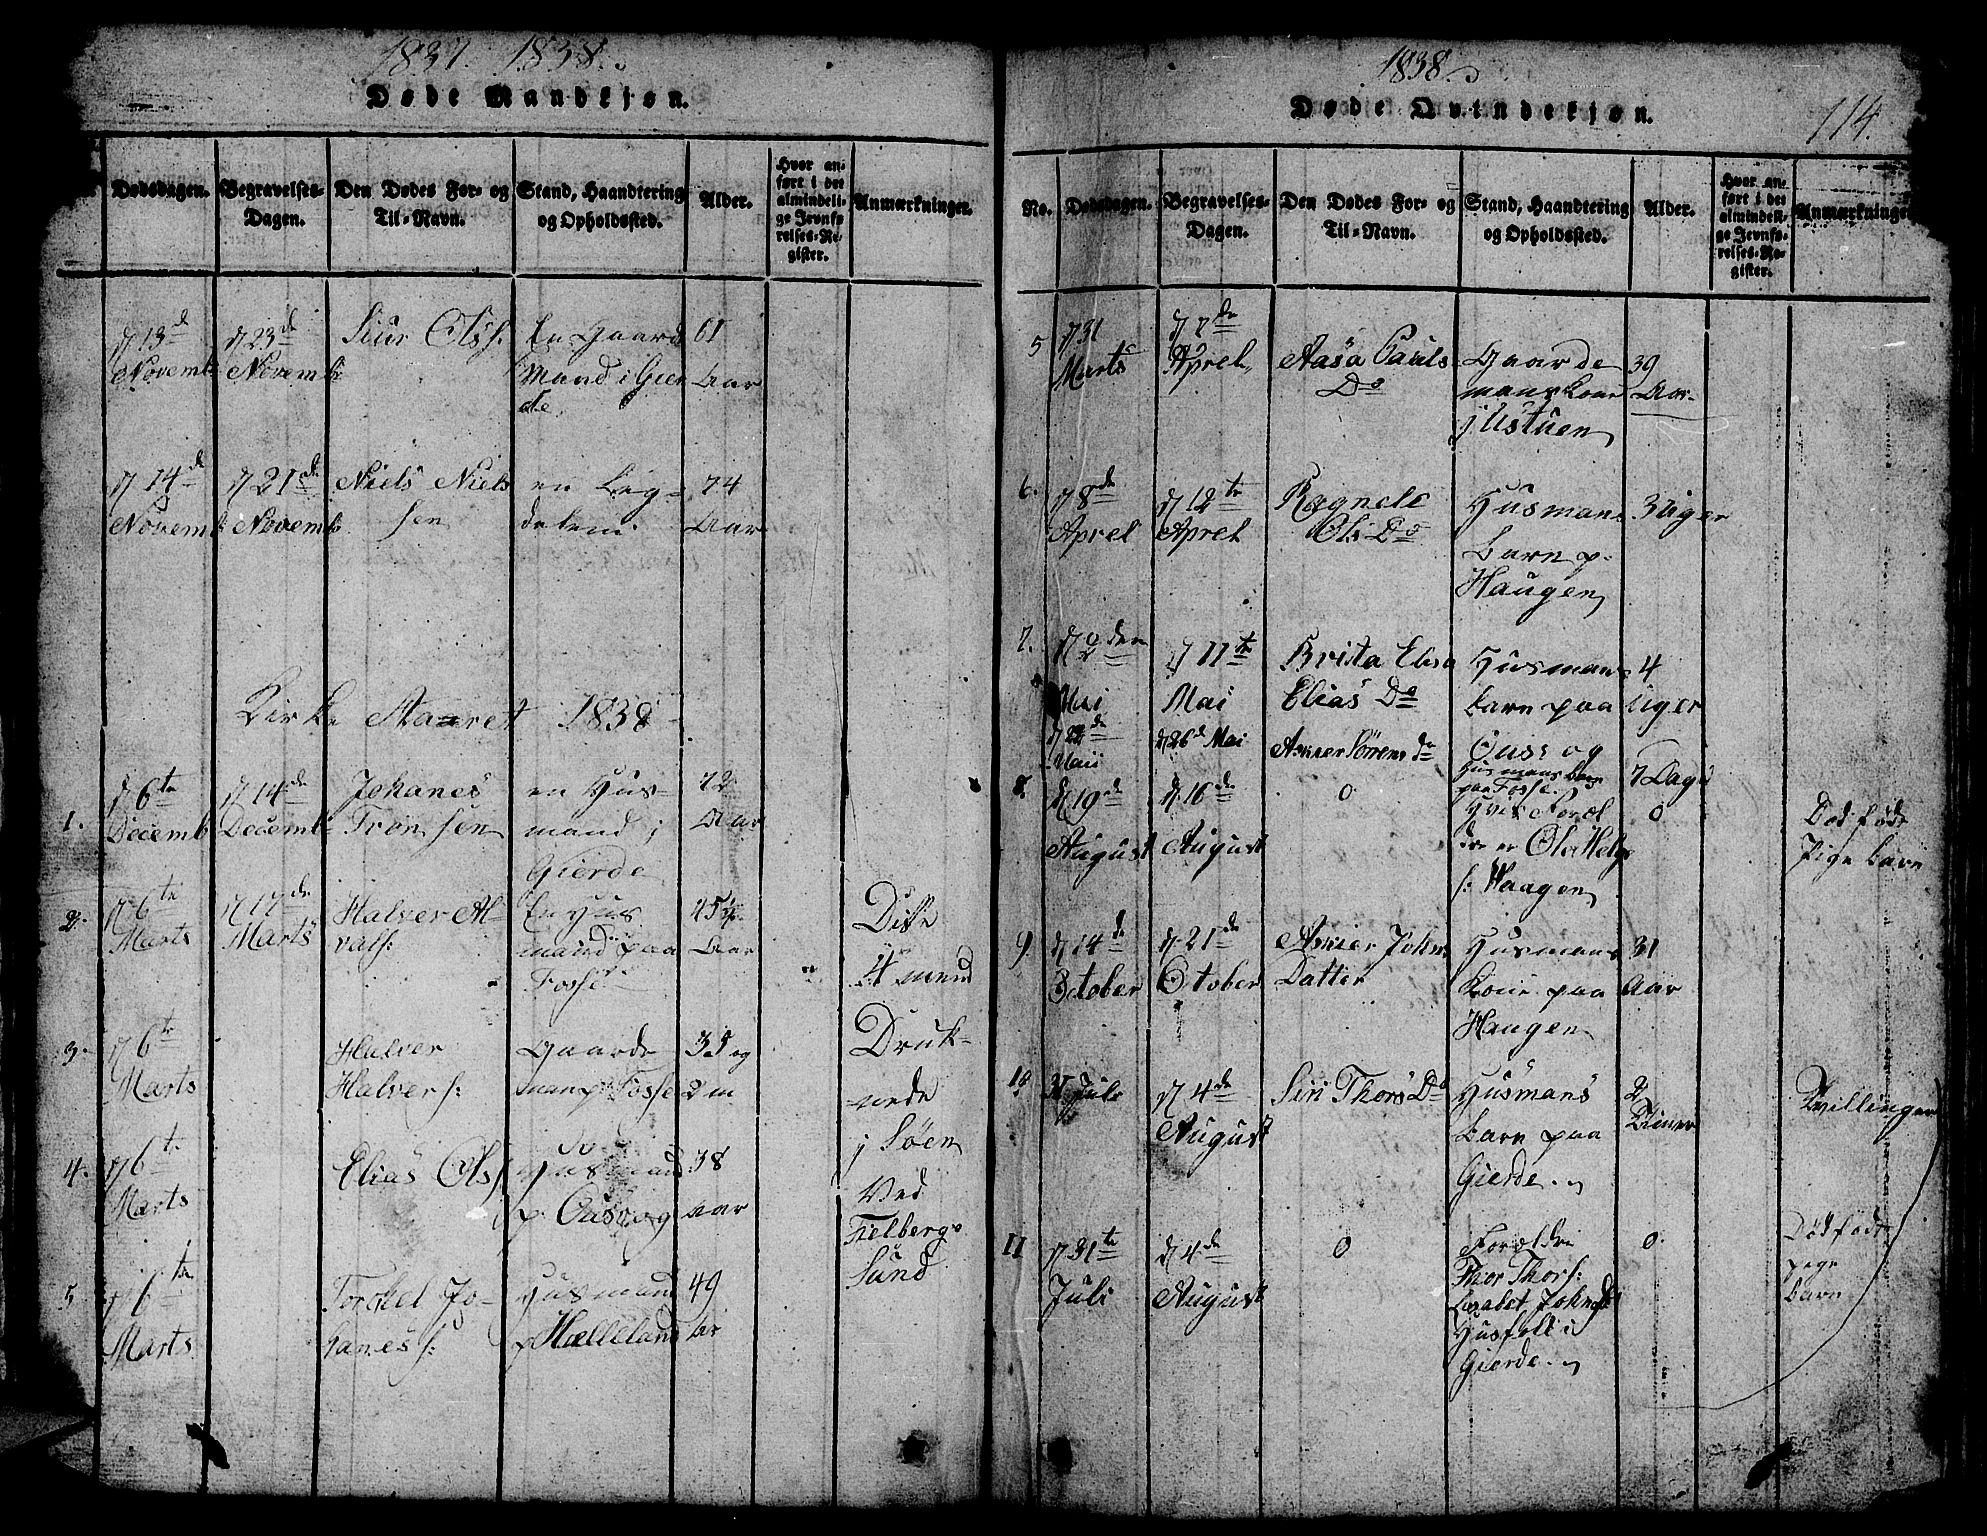 1837. 1838.
Døde Mandkjøn.
Dødsdagen.
Begravelses-
Dagen.
Den Dødes For- og
Til-Navn.
Stand, Haandtering
og Opholdssted.
Alder.
Hvor an-
ført i det
almindeli-
ge Jevnfø-
relses-Re-
gister.
Anmærkninger.
d 13de
Novemb:
d 23de
Novemb:
Siur Ols:
En Gaard
Mand i Gier
de
61
Aar
d 14de
Novemb:
d 21de
Novemb:
Niels Niels
sen
en Leg-
delem
74
Aar
Kirke Aaret 1838
1.
d 6te
Decemb
d 14de
Decemb:
Johanes
Tronsen
en Hus-
mand i
Gierde
72
Aar
2.
d 6te
Marts
d 17de
Marts
Halver
vals:
En Hus
mand paa
Fosse
45
Aar
Disse
4 mend
3.
d 6te
Marts
Halver
Halvers:
Gaard
man p Fosse
35 og
2 m
Druk-
nede
4.
d 6te
Marts
Elias Ols:
Husmand
p. Ousvog
38
aar
i Søen
Ved
Fielbergs
Sund
5
d 6te
Marts
Torckel Jo-
hanes s:
Husmand
p Hælleland
49
ar
1838.
Døde Qvindekjøn.
114.
No.
Dødsdagen.
Begravelses-
Dagen.
Den Dødes For- og
Til-Navn.
Stand, Haandtering
og Opholdssted.
Alder.
Hvor an-
ført i det
almindeli-
ge Jevnfø-
relses-Re-
gister.
Anmærkninger
5
d 31
Marts
d 7de
Aprel
Aasa Pauls
Do
Gaarde
mans Kone
i Ustuen
39
Aar
6.
d 8de
Aprel
d 12te
Aprel
Ragnele
Ols Do
Husmans
barn p.
Haugen
3 Uger
7.
Mai
d 11te
Mai
Brita Elsa
Elias Do
Husmans
barn paa
Ousvog
4
Uger
d 22de
Maii
d 26de Mai
Anner Sørens do
Husmans barn
paa Fosse
7 Dage
8.
d 19de
August
d 16de
August
0
Hvis Foræl
dre er Ole Helg
s: Haagen
0
Dødfødt
Pige barn
9.
d 14de
October
d 21de
October
Anner Johns
Datter
Husmans
Kone paa
Haugen
31
Aar
10
31 Juli
d 4de
August
Siri Thors Do
Husmans
barn paa
Gierde.
2
Timer
Tvillinger
11
d 31te
Juli
d 4de
August
0
Forældre
Thor Thors:
Husfolk i
Gierde.
0.
Dødfødt
pige
barn